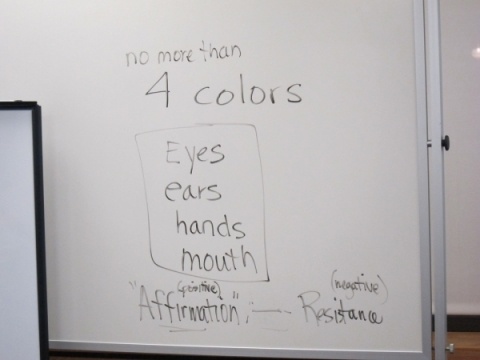 no more than
4 colors
Eyes
ears
hands
mouth
(positive) (negative)
"Affirmation", — Resistance